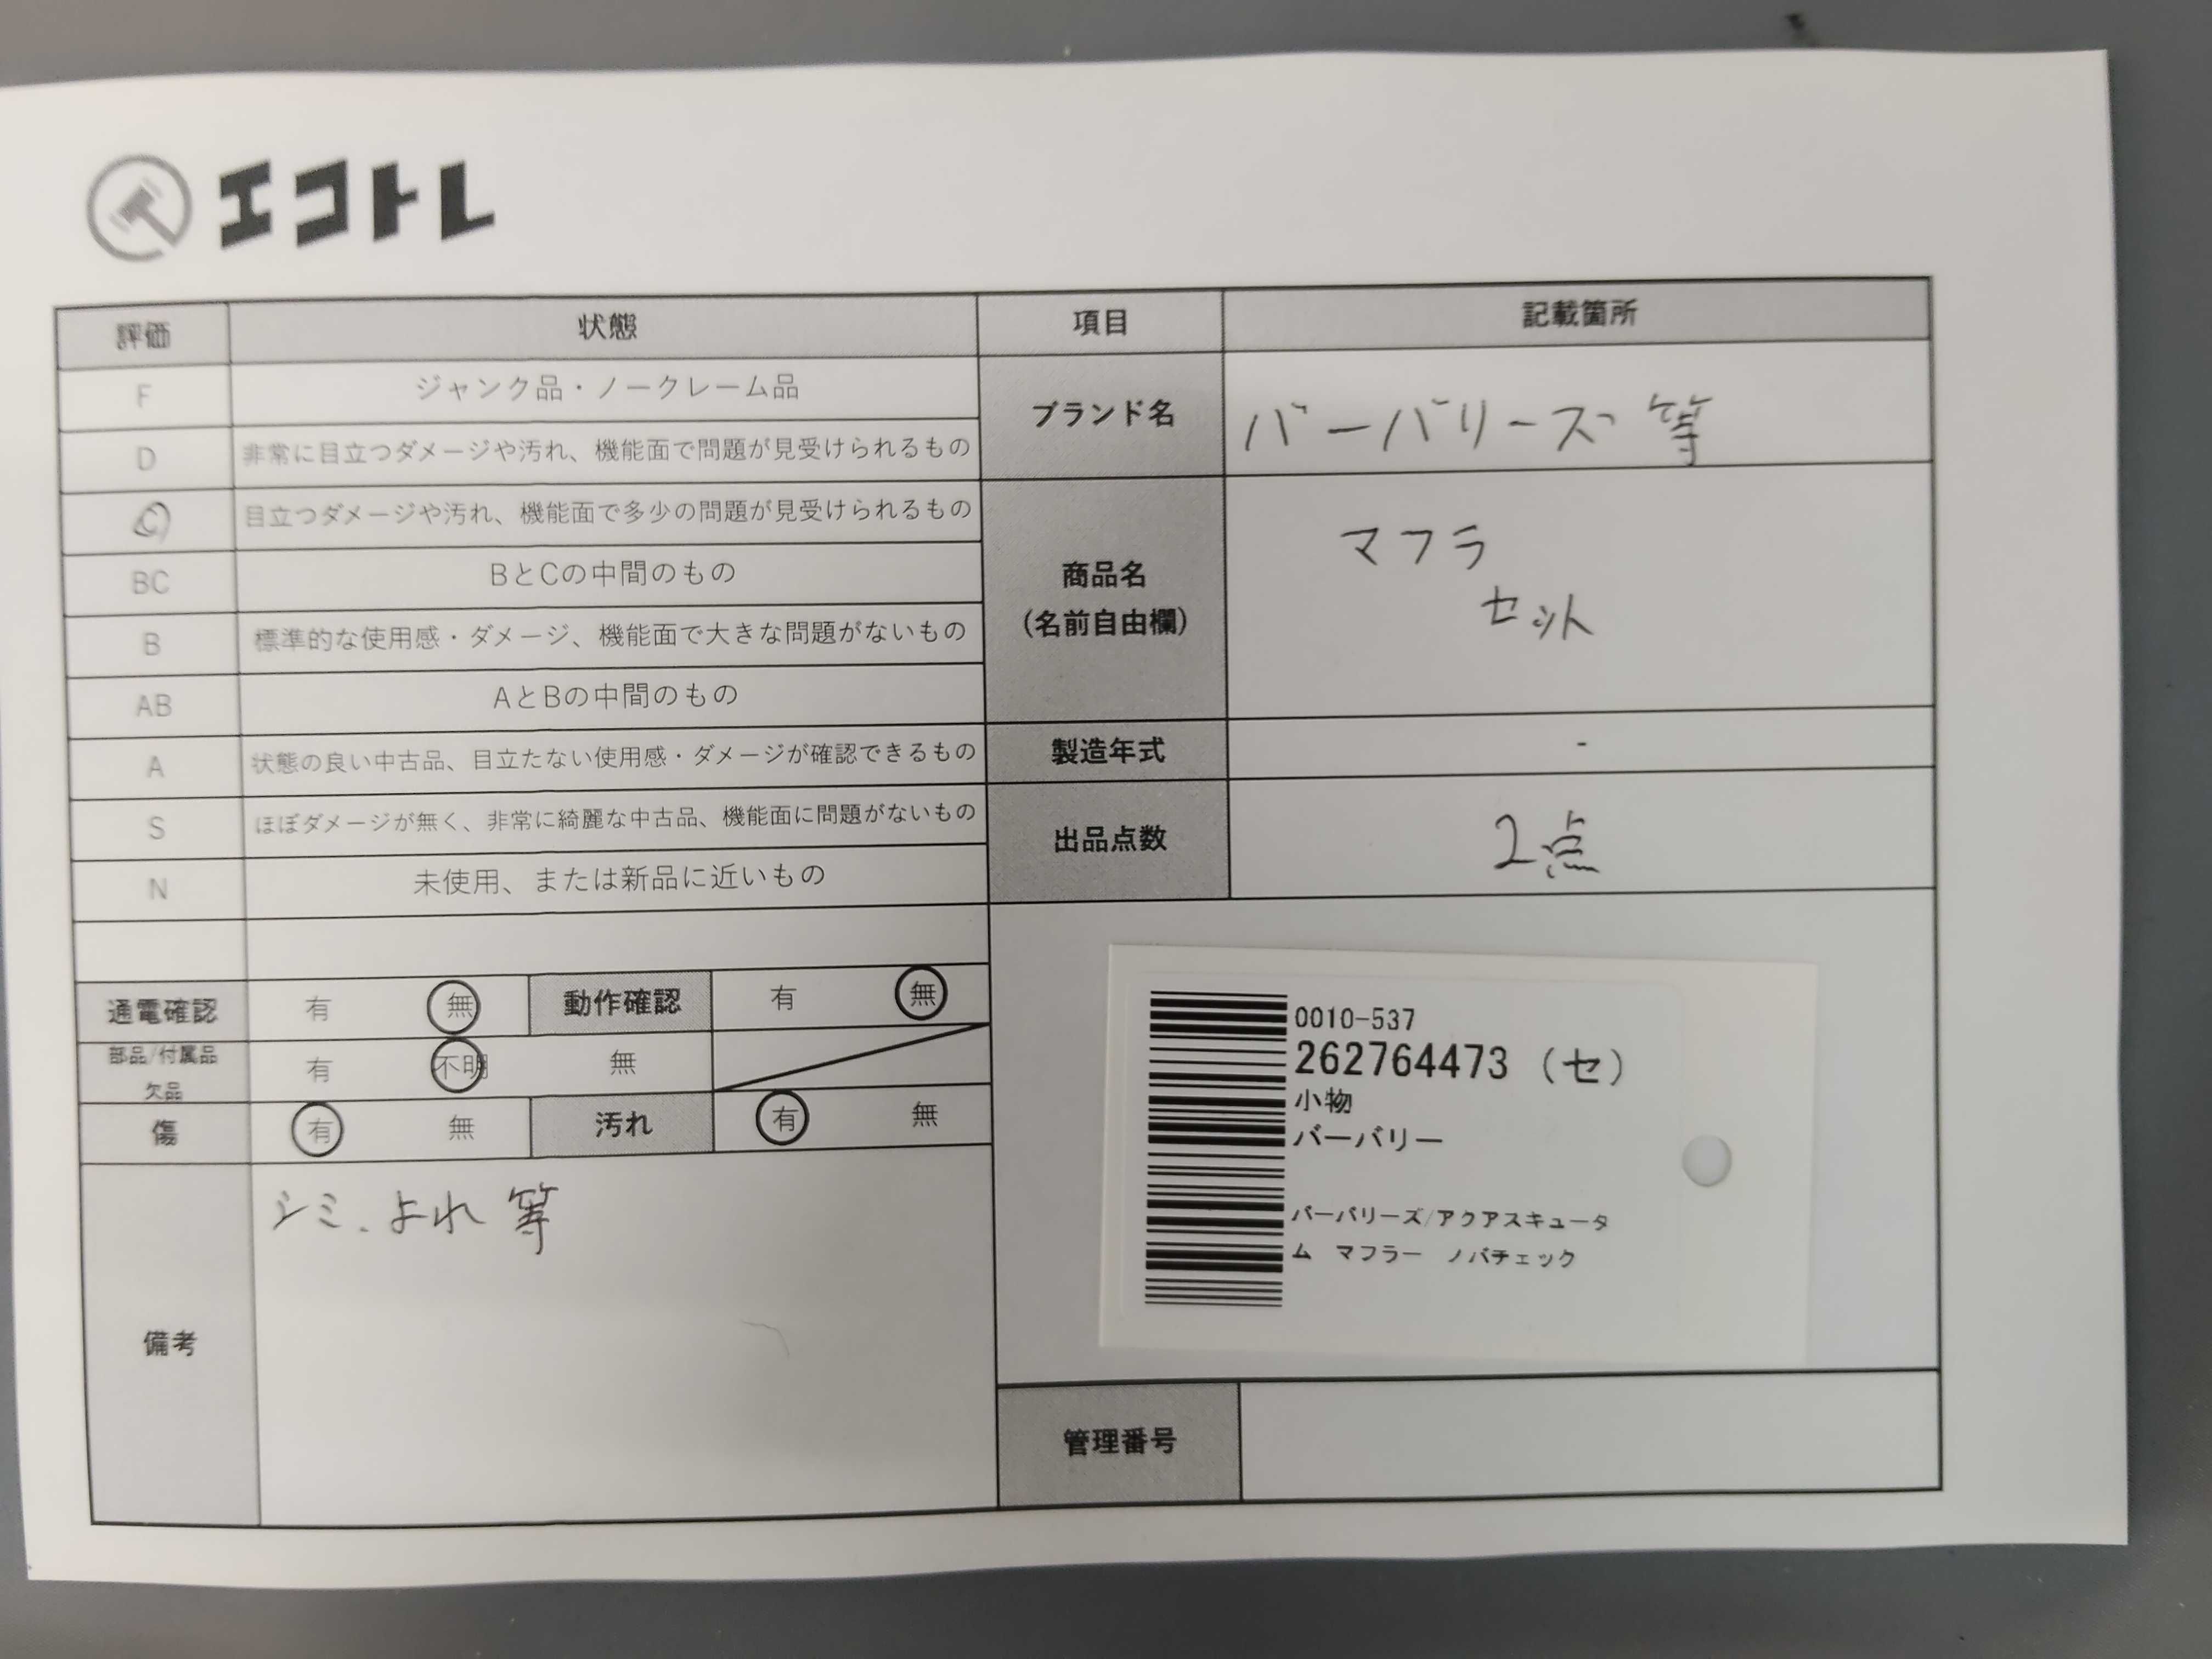 エコトレ
評価 状態 項目 記載箇所
F ジャンク品・ノークレーム品
D 非常に目立つダメージや汚れ、機能面で問題が見受けられるもの
C 目立つダメージや汚れ、機能面で多少の問題が見受けられるもの
BC BとCの中間のもの
B 標準的な使用感・ダメージ、機能面で大きな問題がないもの
AB AとBの中間のもの
A 状態の良い中古品、目立たない使用感・ダメージが確認できるもの
S ほぼダメージが無く、非常に綺麗な中古品、機能面に問題がないもの
N 未使用、または新品に近いもの
ブランド名 バーバリーズ 等
商品名
(名前自由欄)
マフラ
セット
製造年式 -
出品点数 2点
通電確認 有 無 動作確認 有 無
部品/付属品
欠品
有 不明 無
傷 有 無 汚れ 有 無
備考
シミ、よれ 等
0010-537
262764473 (セ)
小物
バーバリー
バーバリーズ/アクアスキュータ
ム マフラー ノバチェック
管理番号